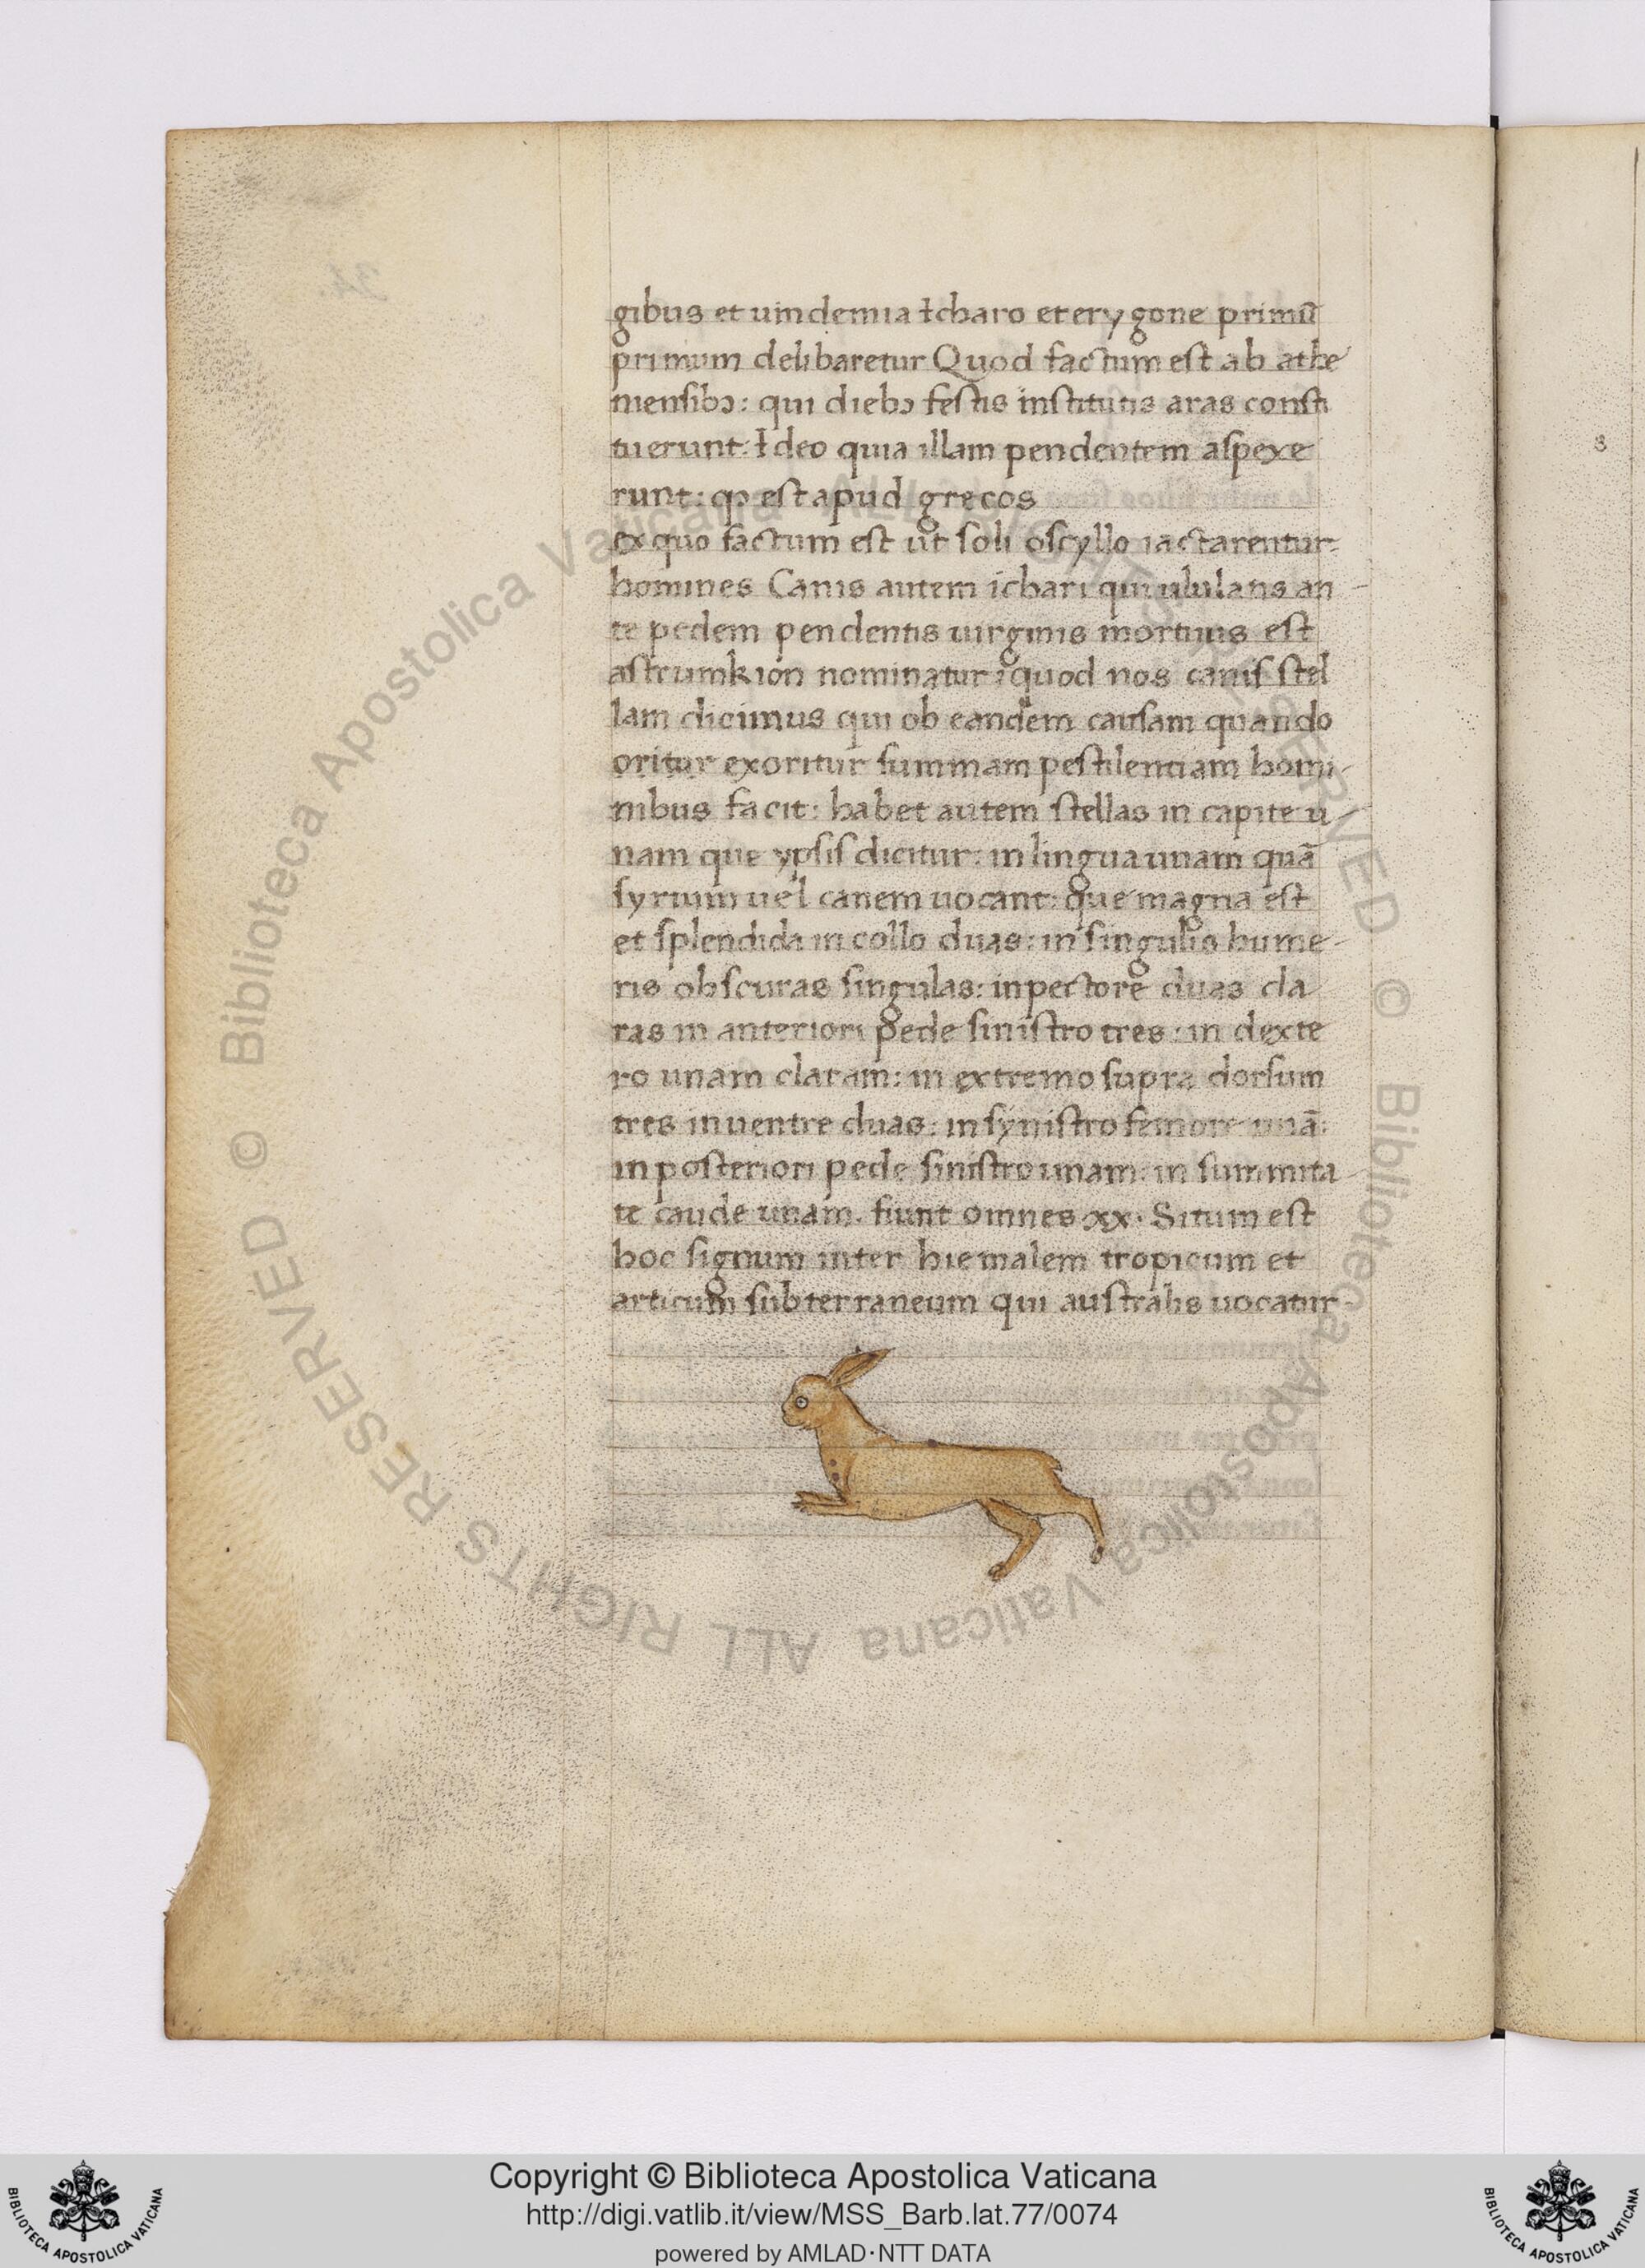 gibus et uindemia Icharo et erygone primū
primum delibaretur Quod factum est ab athe
niensibꝯ: qui diebꝯ festis institutis aras consti
tuerunt. Ideo quia illam pendentem aspexe
runt: qꝫ est apud grecos
ex quo factum est ut soli oscyllo iactarentur
homines Canis autem ichari qui ululans an
te pedem pendentis uirginis mortuus est
astrumkion nominatur: quod nos canis stel
lam dicimus qui ob eandem causam quando
oritur exoritur summam pestilentiam homi
nibus facit: habet autem stellas in capite u
nam que ypsis dicitur: in lingua unam quā
syrium uel canem uocant: que magna est
et splendida in collo duas: in singulis hume
ris obscuras singulas: in pectore duas cla
ras in anteriori pede sinistro tres: in dexte
ro unam claram: in extremo supra dorsum
tres in uentre duas: in synistro femore unā:
in posteriori pede sinistro unam: in summita
te caude unam. fiunt omnes xx. Situm est
hoc signum inter hiemalem tropicum et
articum subterraneum qui australis uocatur
Copyright © Biblioteca Apostolica Vaticana
http://digi.vatlib.it/view/MSS_Barb.lat.77/0074
powered by AMLAD·NTT DATA
BIBLIOTECA APOSTOLICA VATICANA
BIBLIOTECA APOSTOLICA VATICANA
© Biblioteca Apostolica Vaticana ALL RIGHTS RESERVED © Biblioteca Apostolica Vaticana ALL RIGHTS RESERVED